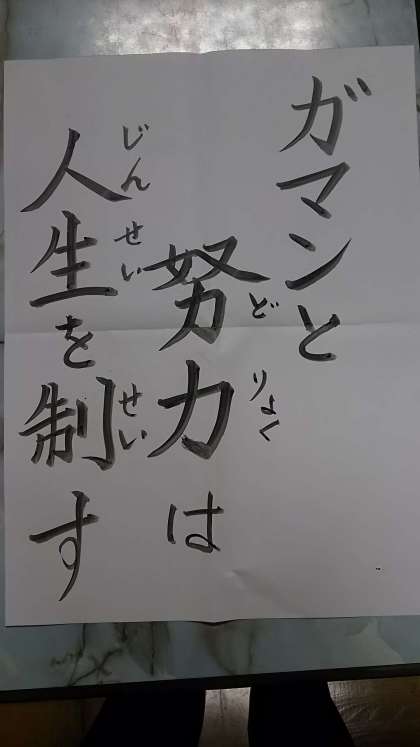 ガマンと
努力は
どりょく
人生を制す
じんせい
せい